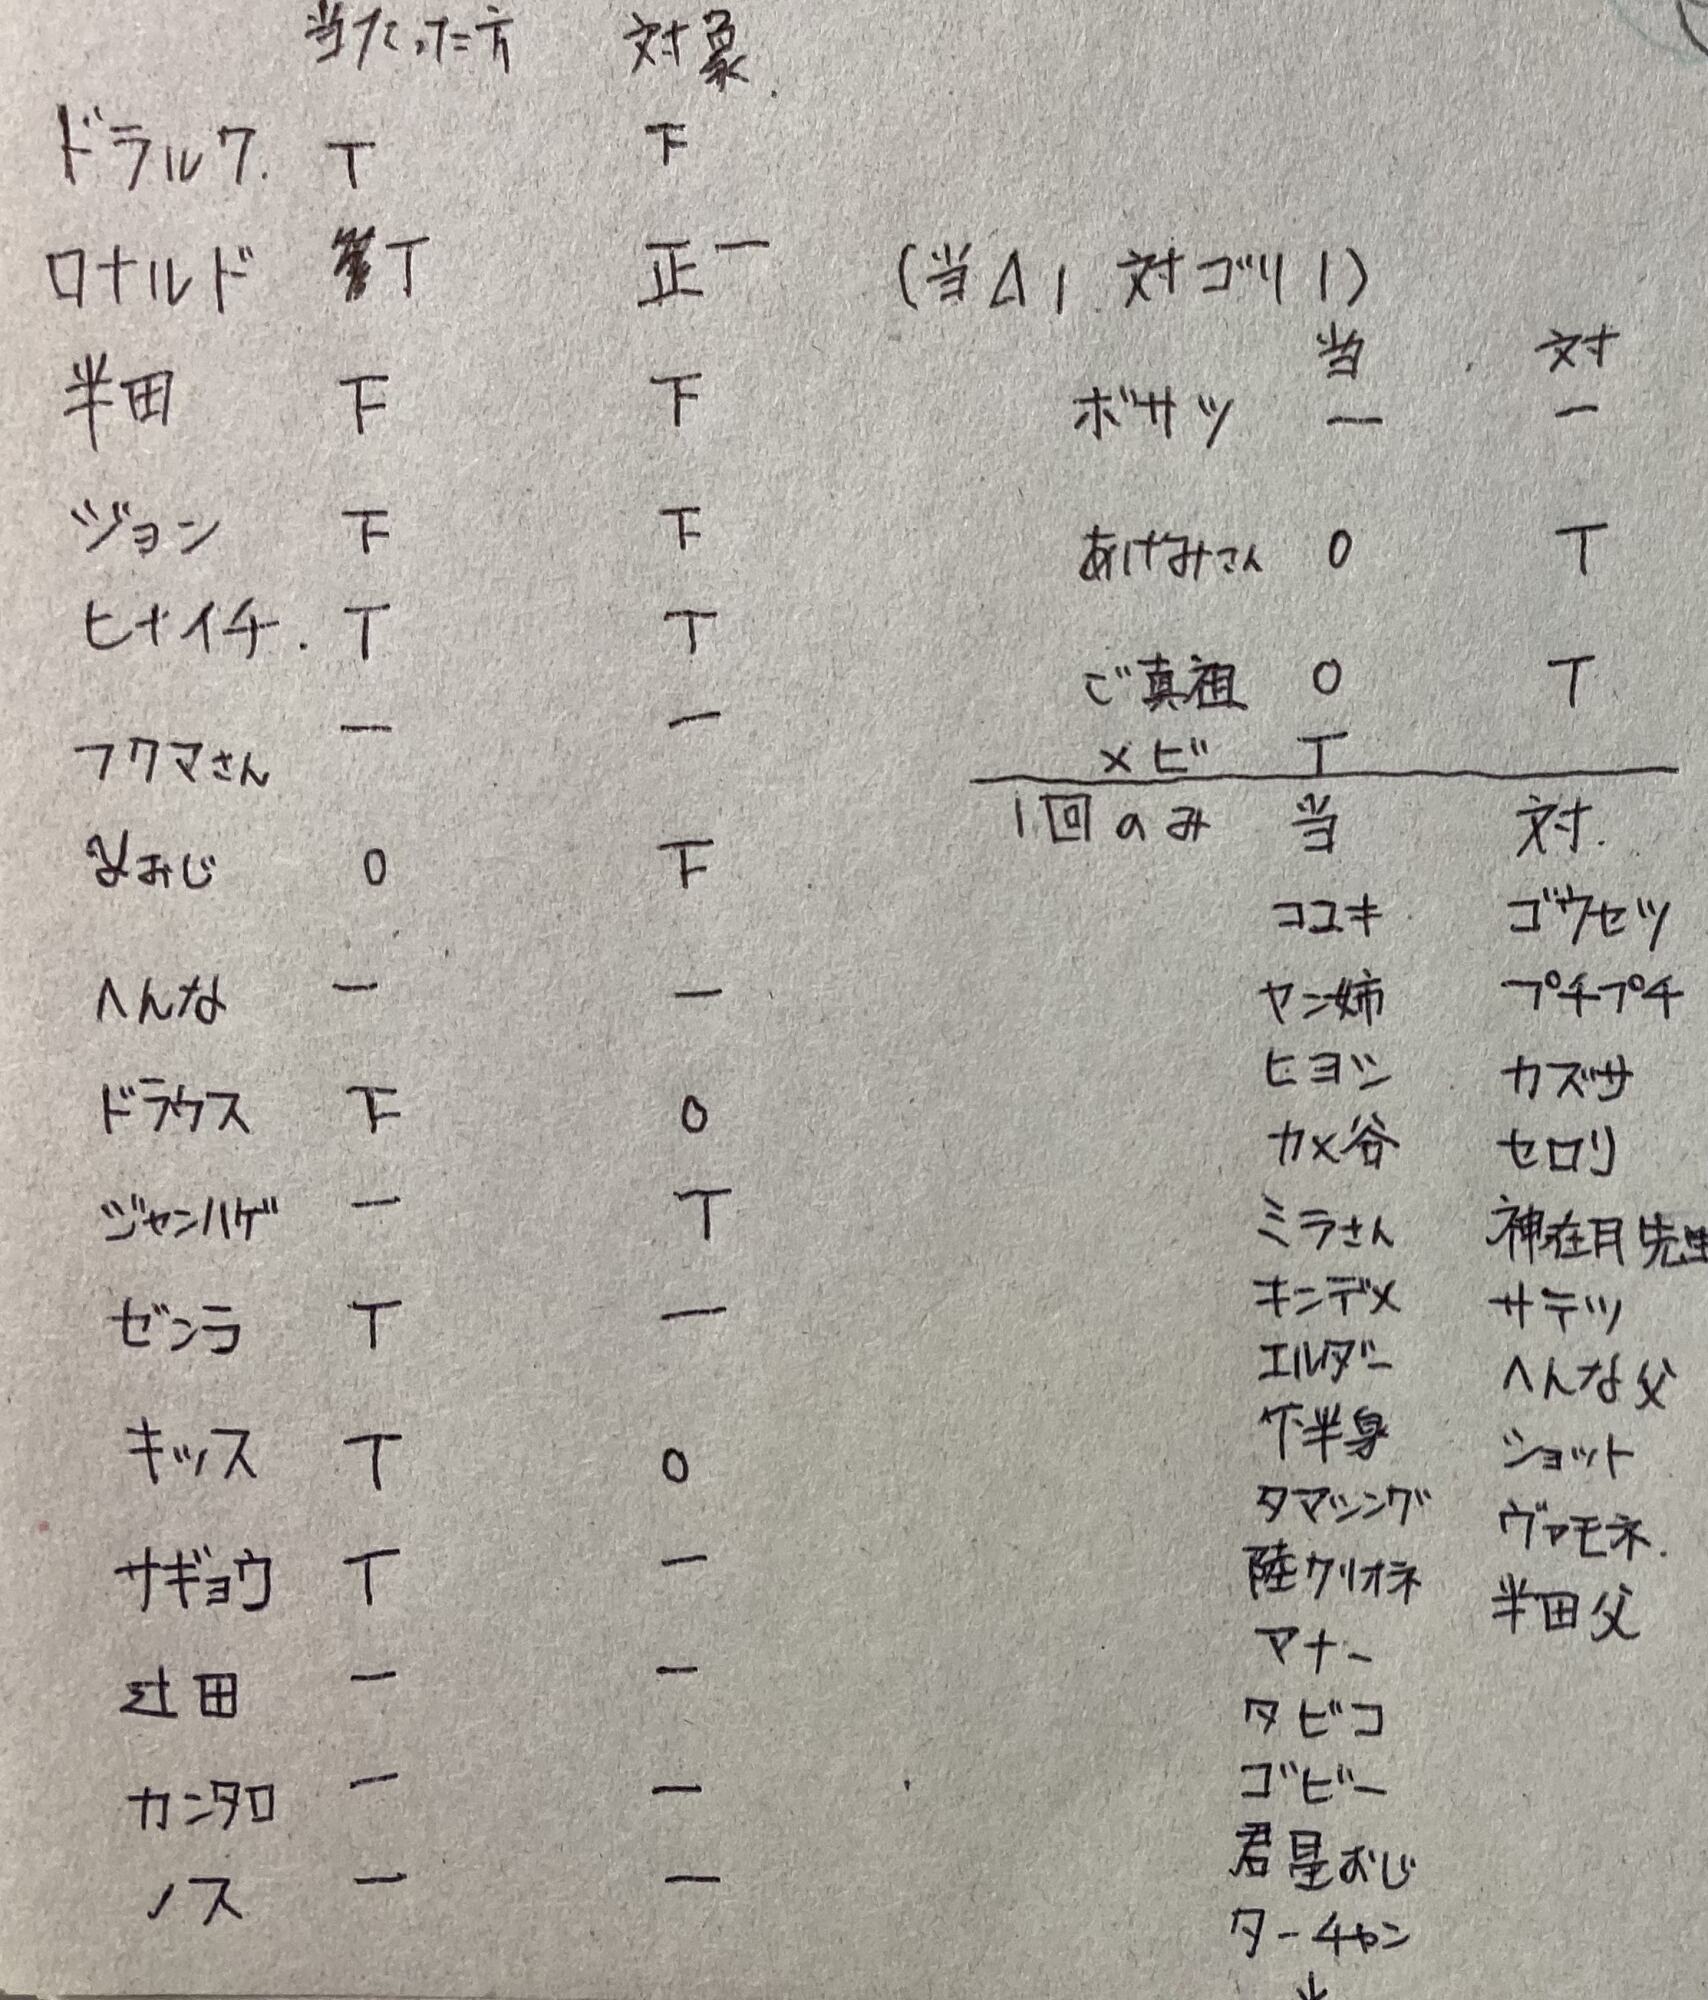 当たった方 対象
ドラルク. T 下
ロナルド T 正一 (当△1 対ゴリ1)
半田 下 下
ジョン 下 下
ヒナイチ. T T
フクマさん 一 一
Yおじ 0 下
へんな 一 一
ドラウス 下 0
ジャンハゲ 一 T
ゼンラ T 一
キッス T 0
サギョウ T 一
辻田 一 一
カンタロ 一 一
ノス 一 一
当 対
ボサツ 一 一
あけみさん 0 T
ご真祖 0 T
メビ T
1回のみ 当 対.
コユキ ゴウセツ
ヤン姉 プチプチ
ヒヨシ カズサ
カメ谷 セロリ
ミラさん 神在月先生
キンデメ サテツ
エルダー へんな父
下半身 ショット
タマッシング ヴァモネ.
陸クリオネ 半田父
マナー
タビコ
ゴビー
君星おじ
ターチャン
↓